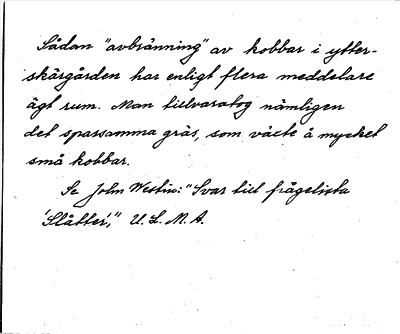 Sådan "avbränning" av kobbar i ytter-
skärgården har enligt flera meddelare
ägt rum. Man tillvaratog nämligen
det sparsamma gräs, som växte å mycket
små kobbar.
Se John Westin: "Svar till frågelista
'Slåtter'," U.L.M.A.